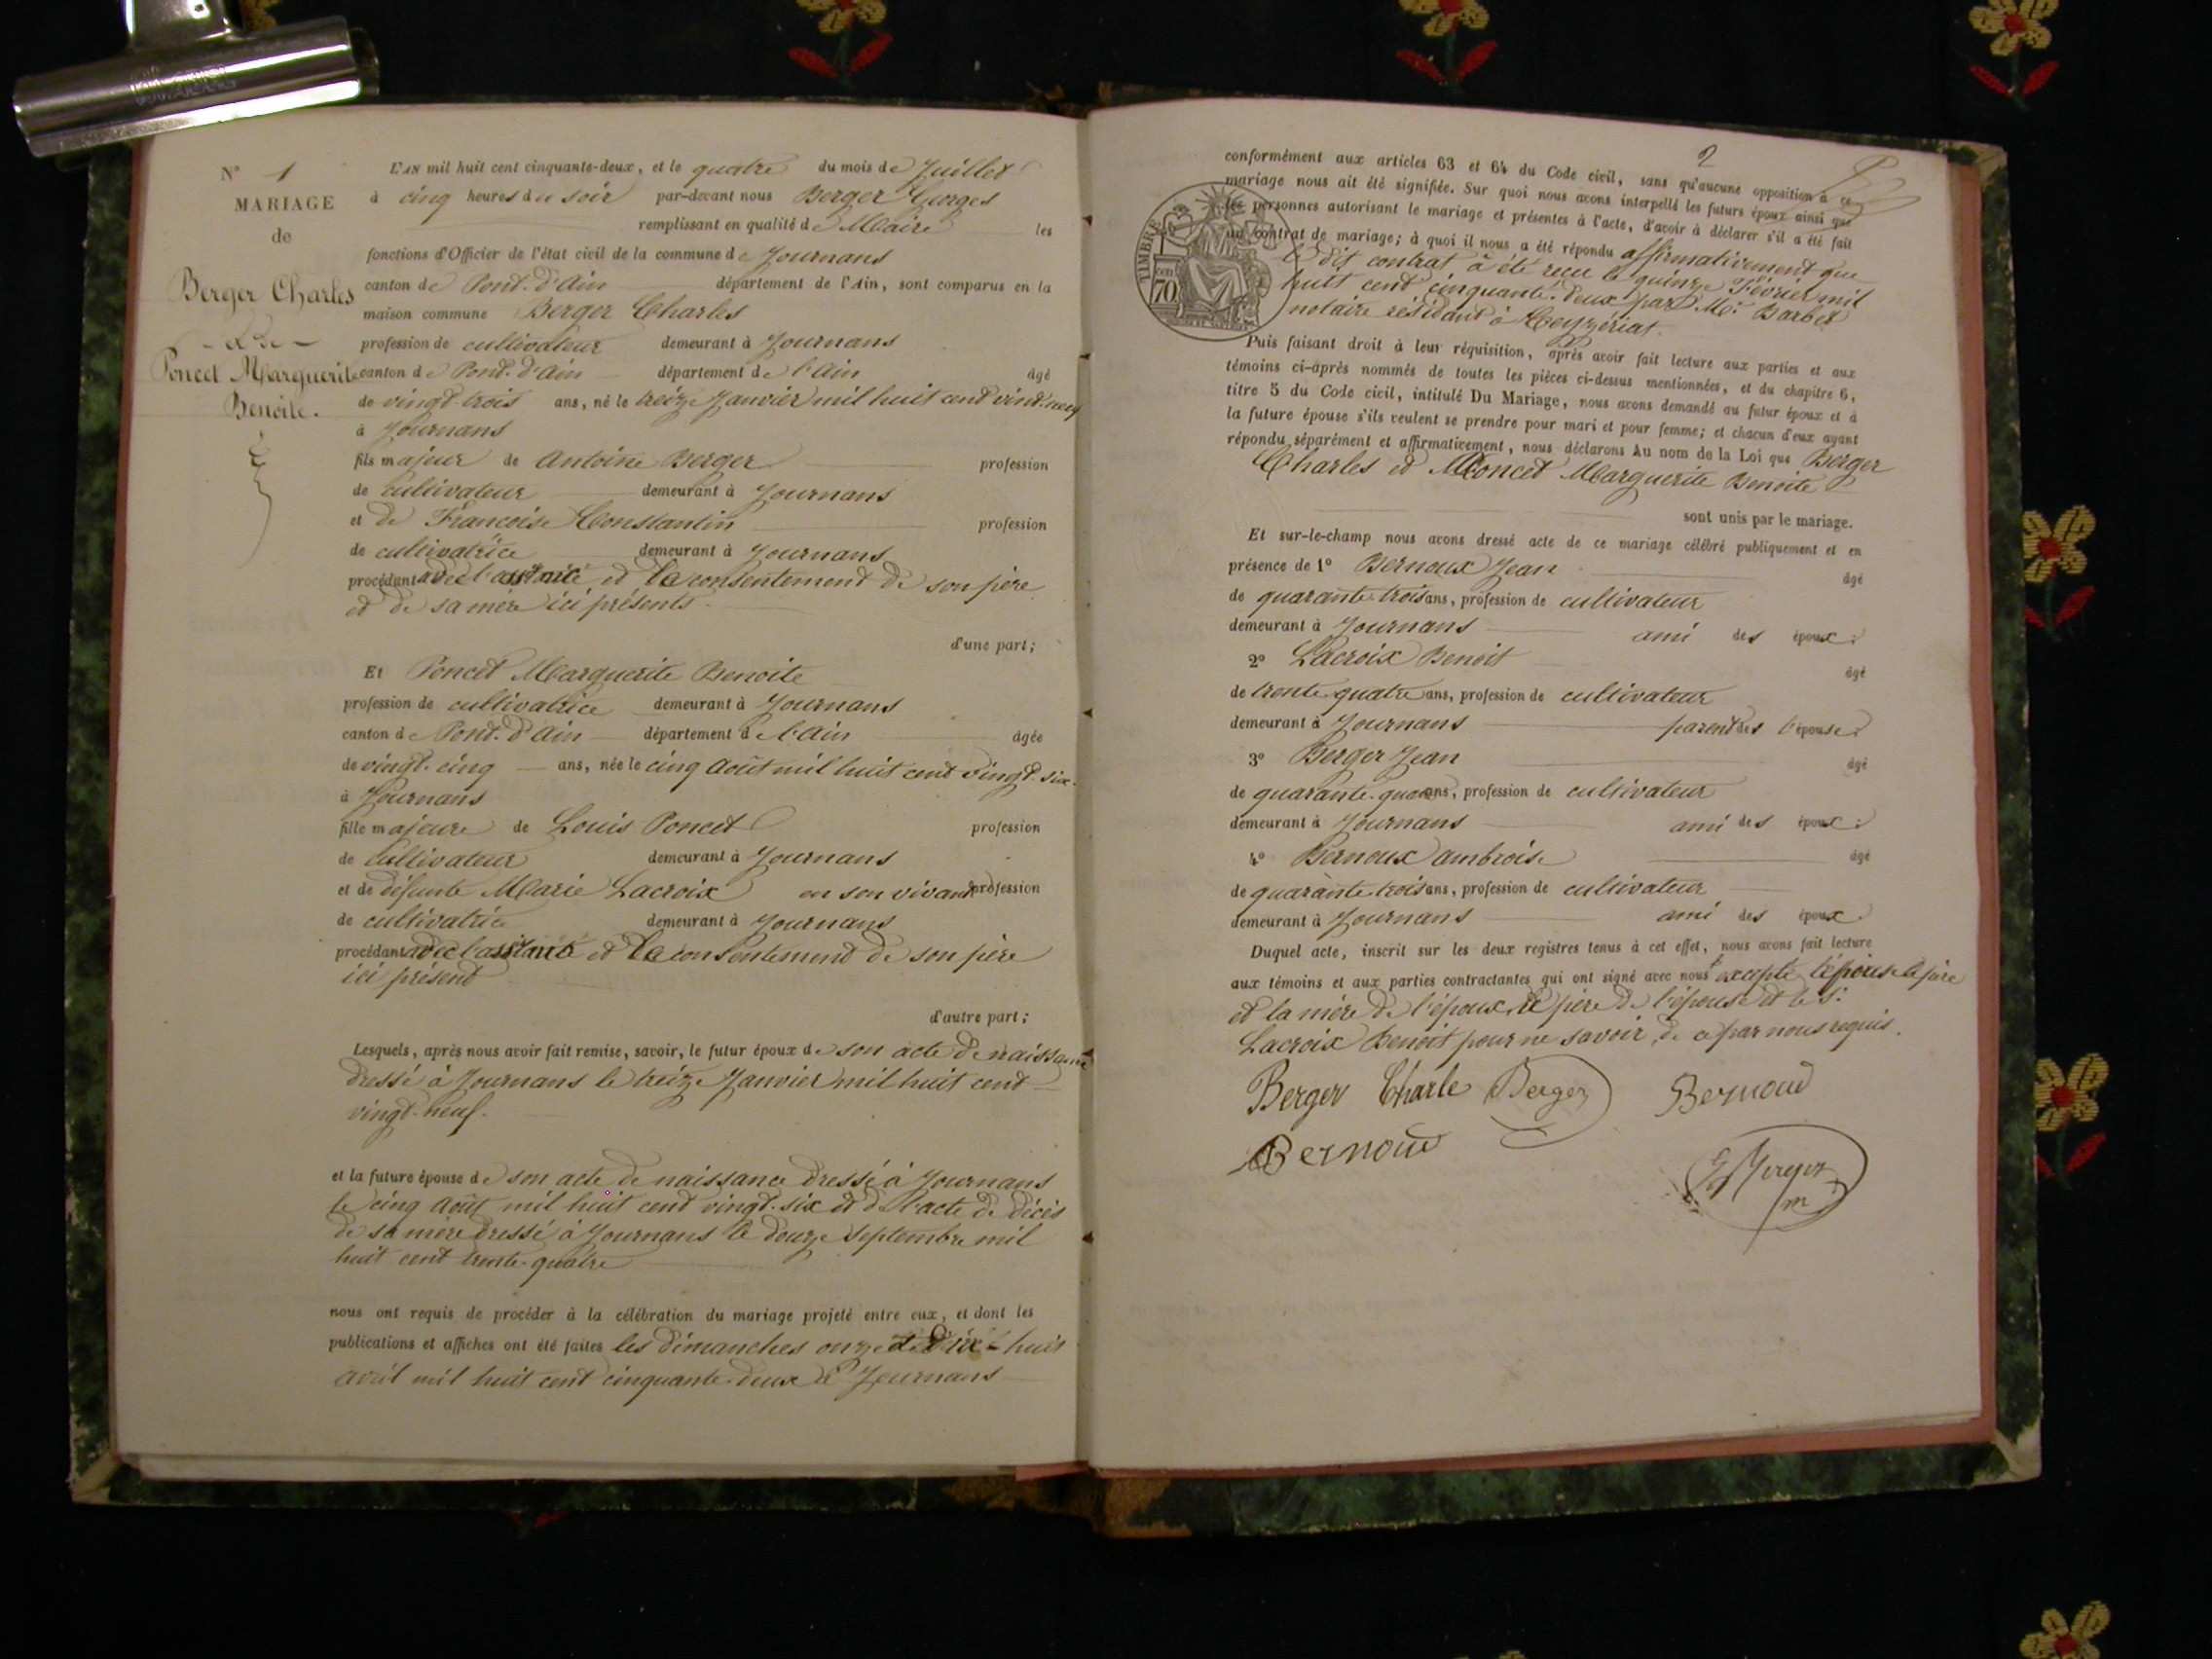 N° 1
MARIAGE
de
Berger Charles
et de
Poncet Marguerite
Benoite.
L'AN mil huit cent cinquante-deux, et le quatre du mois de Juillet
à cinq heures du soir par-devant nous Berger Georges
remplissant en qualité de Maire les
fonctions d'Officier de l'état civil de la commune de Journans
canton de Pont-d'Ain département de l'Ain, sont comparus en la
maison commune Berger Charles
profession de cultivateur demeurant à Journans
canton de Pont-d'Ain département de l'Ain âgé
de vingt-trois ans, né le treize Janvier mil huit cent vint-neuf
à Journans
fils majeur de Antoine Berger profession
de cultivateur demeurant à Journans
et de Francoise Constantin profession
de cultivatrice demeurant à Journans
procédant avec et le consentement de son père
et de sa mère ici présents.
d'une part;
Et Poncet Marguerite Benoite
profession de cultivatrice demeurant à Journans
canton de Pont-d'Ain département de l'Ain âgée
de vingt-cinq ans, née le cinq Août mil huit cent vingt-six.
à Journans
fille majeure de Louis Poncet profession
de cultivateur demeurant à Journans
et de défunte Marie Lacroix en son vivant profession
de cultivatrice demeurant à Journans
procédant avec et le consentement de son père
ici présent
d'autre part;
Lesquels, après nous avoir fait remise, savoir, le futur époux de son acte de naissance
dressé à Journans le treize Janvier mil huit cent
vingt-neuf.
et la future épouse de son acte de naissance dressé à Journans
le cinq Août mil huit cent vingt-six et de l'acte de décès
de sa mère dressé à Journans le douze Septembre mil
huit cent trente-quatre
nous ont requis de procéder à la célébration du mariage projeté entre eux, et dont les
publications et affiches ont été faites les dimanches onze et dix-huit
avril mil huit cent cinquante-deux à Journans
2
conformément aux articles 63 et 64 du Code civil, sans qu'aucune opposition à ce
mariage nous ait été signifiée. Sur quoi nous avons interpellé les futurs époux ainsi que
les personnes autorisant le mariage et présentes à l'acte, d'avoir à déclarer s'il a été fait
un contrat de mariage; à quoi il nous a été répondu affirmativement que
le dit contrat à été reçu le quinze Février mil
huit cent cinquante-deux par Me. Barbet
notaire résidant à Ceyzériat.
TIMBRE
70
Puis faisant droit à leur réquisition, après avoir fait lecture aux parties et aux
témoins ci-après nommés de toutes les pièces ci-dessus mentionnées, et du chapitre 6,
titre 5 du Code civil, intitulé Du Mariage, nous avons demandé au futur époux et à
la future épouse s'ils veulent se prendre pour mari et pour femme; et chacun d'eux ayant
répondu séparément et affirmativement, nous déclarons Au nom de la Loi que Berger
Charles et Poncet Marguerite Benoite
sont unis par le mariage.
Et sur-le-champ nous avons dressé acte de ce mariage célébré publiquement et en
présence de 1° Bernoux Jean âgé
de quarante-trois ans, profession de cultivateur
demeurant à Journans ami des époux.
2° Lacroix Benoit âgé
de trente-quatre ans, profession de cultivateur
demeurant à Journans parent des l'épouse.
3° Berger Jean âgé
de quarante- ans, profession de cultivateur
demeurant à Journans ami des époux.
4° Bernoux ambroise âgé
de quarante-trois ans, profession de cultivateur
demeurant à Journans ami des époux
Duquel acte, inscrit sur les deux registres tenus à cet effet, nous avons fait lecture
aux témoins et aux parties contractantes qui ont signé avec nous excepté l'épouse le père
et la mère de l'époux, le père de l'épouse et le Sr.
Lacroix Benoit pour ne savoir, de ce par nous requis.
Berger Charle Berger Bernoud
Bernoud